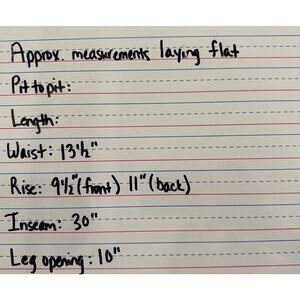 Approx. measurements laying flat
Pit to pit:
Length:
Waist: 13½"
Rise: 9½" (front) 11" (back)
Inseam: 30"
Leg opening: 10"